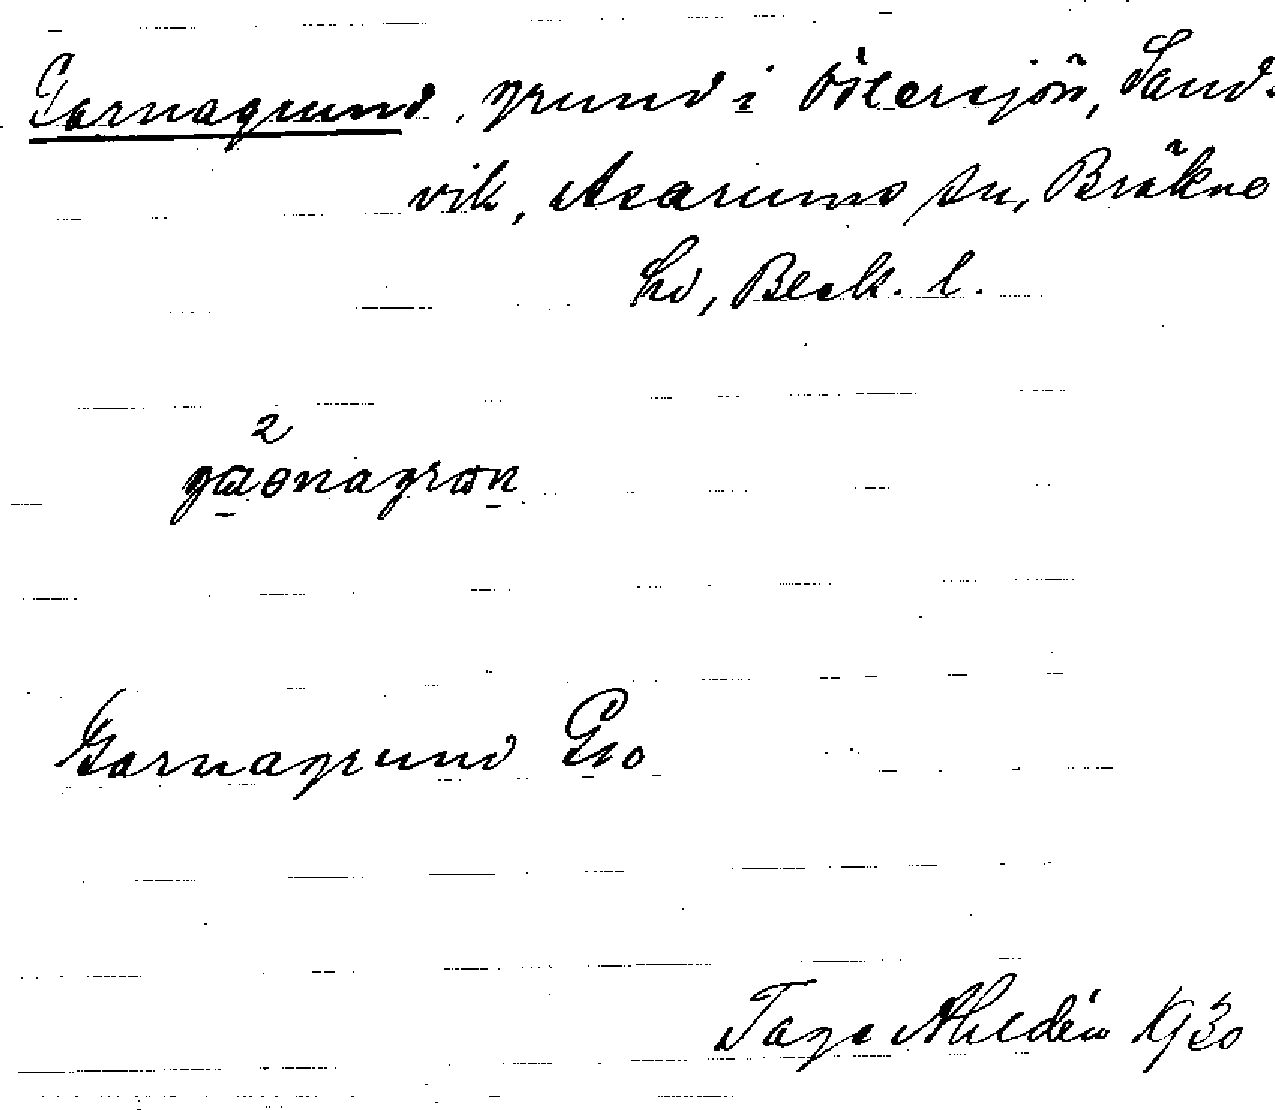 Garnagrund, grund i Östersjön, Sand-
vik, Asarums sn, Bräkne
hd, Blek. l.
Garnagrund Gso
Tage Ahldén 1930